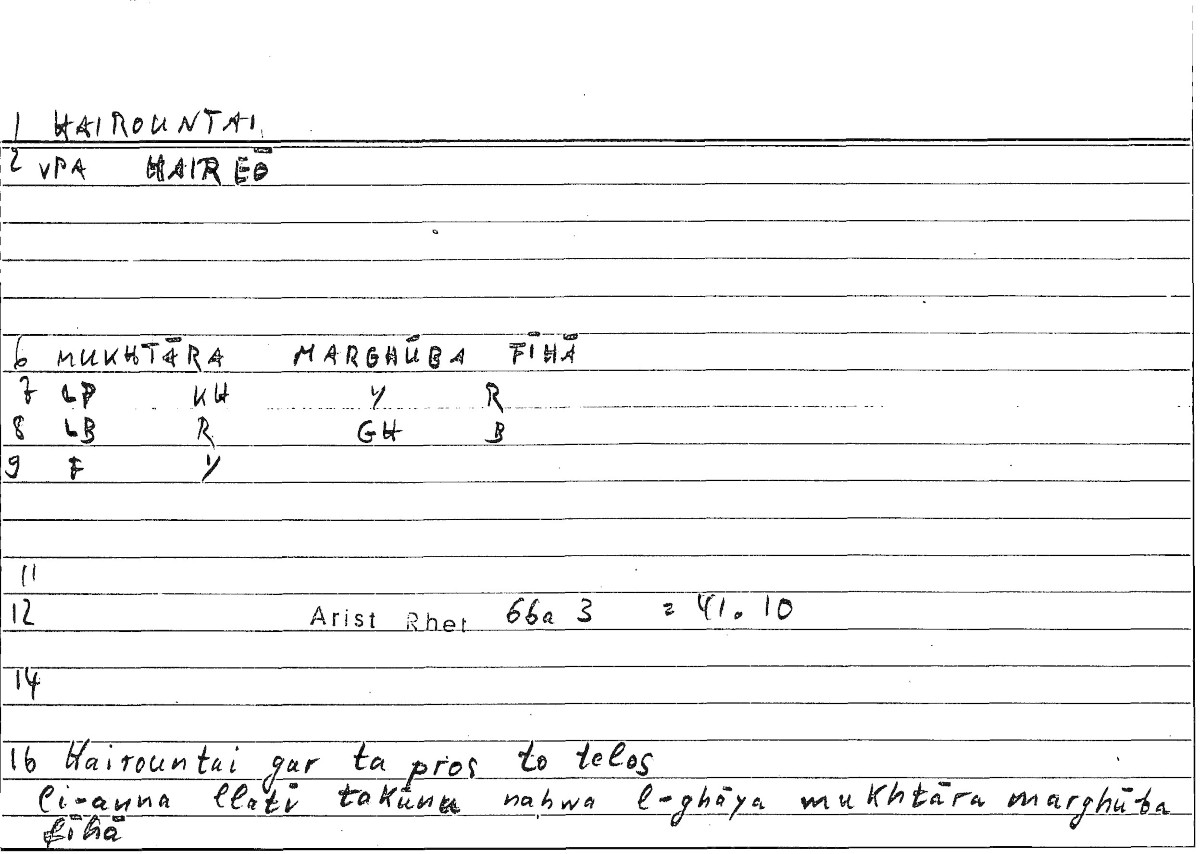 1 HAIROUNTAI
2 vPA HAIREŌ
6 MUKHTĀRA MARGHŪBA FĪHĀ
7 LP KH Y R
8 LB R GH B
9 F Y
11
12 Arist Rhet 66a 3 = 41.10
14
16 Hairountai gar ta pros to telos
li-anna llatī takūnu nahwa l-ghāya mukhtāra marghūba
fīhā